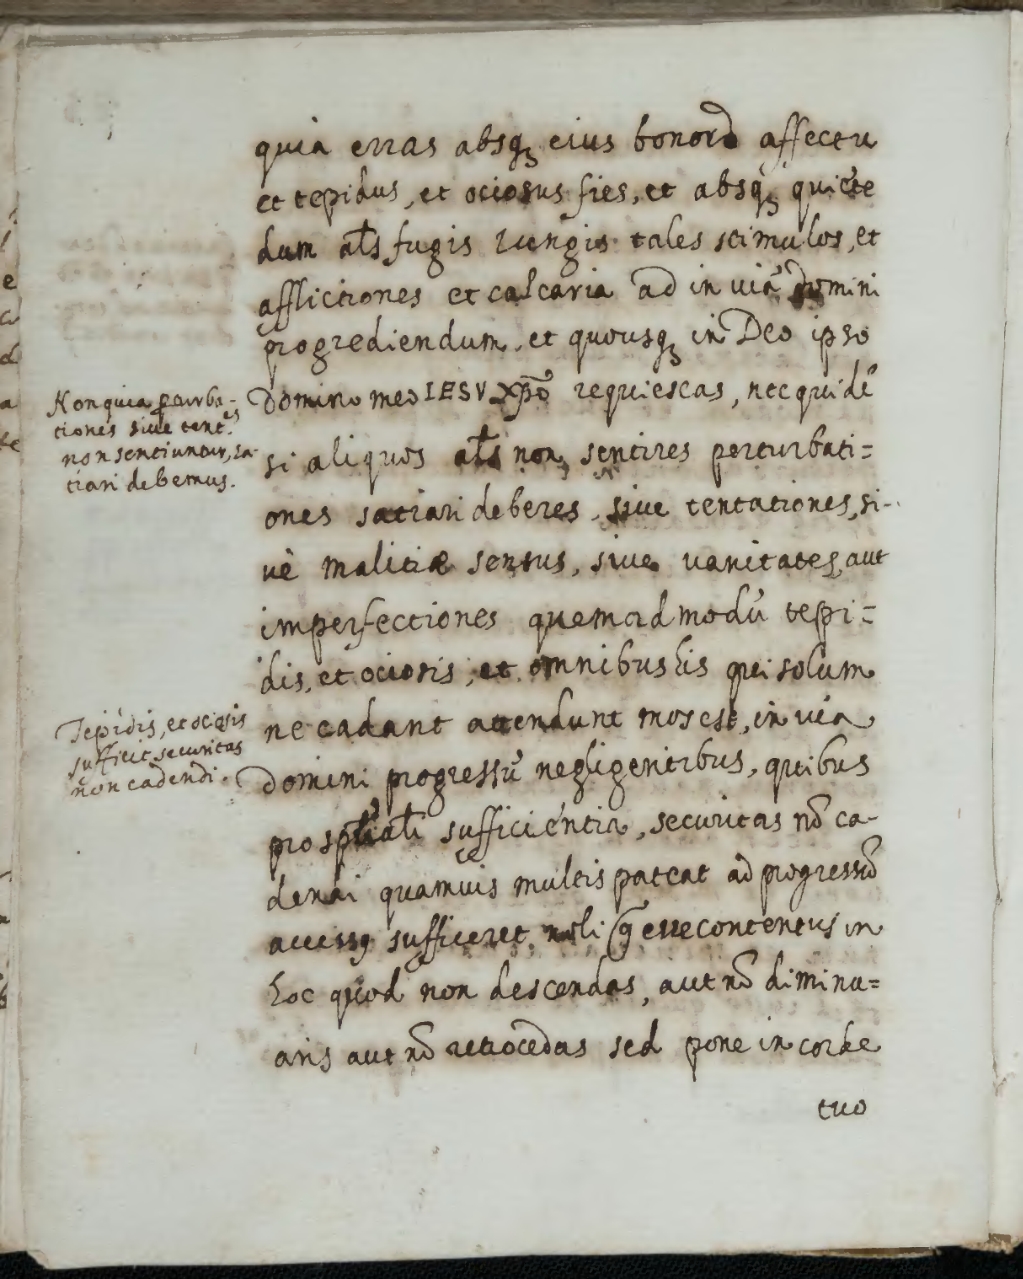 quia erras absq₃ eius bonorũ affectu
et tepidus, et ociosus fies, et absq₃ quiete
dum al̃s fugis tales stimulos, et
afflictiones et calcaria ad in uiã Domini
progrediendum, et quousq₃ in Deo ipso
Domino meo IESV xp̃o requiescas, nec quidẽ
si aliquos al̃s non sentires perturbati=
ones satiari deberes, siue tentationes, si-
uè malitiæ sensus, siue uanitates, aut
imperfectiones quemadmodũ tepi=
dis, et ociosis, et omnibus his qui solum
ne cadant attendunt mos est, in uia
Domini progressũ negligentibus, quibus
pro sufficientia, securitas nõ ca-
dendi quamuis multis pateat ad progressũ
sufficeret noli esse contentus in
hoc quod non descendas, aut nõ diminu=
aris aut nõ retrocedas sed pone in corde
tuo
Non quia perturba-
tiones siue tent.es
non sentiuntur, sa-
tiari debemus.
Tepidis, et ociosis
sufficit securitas
non cadendi.